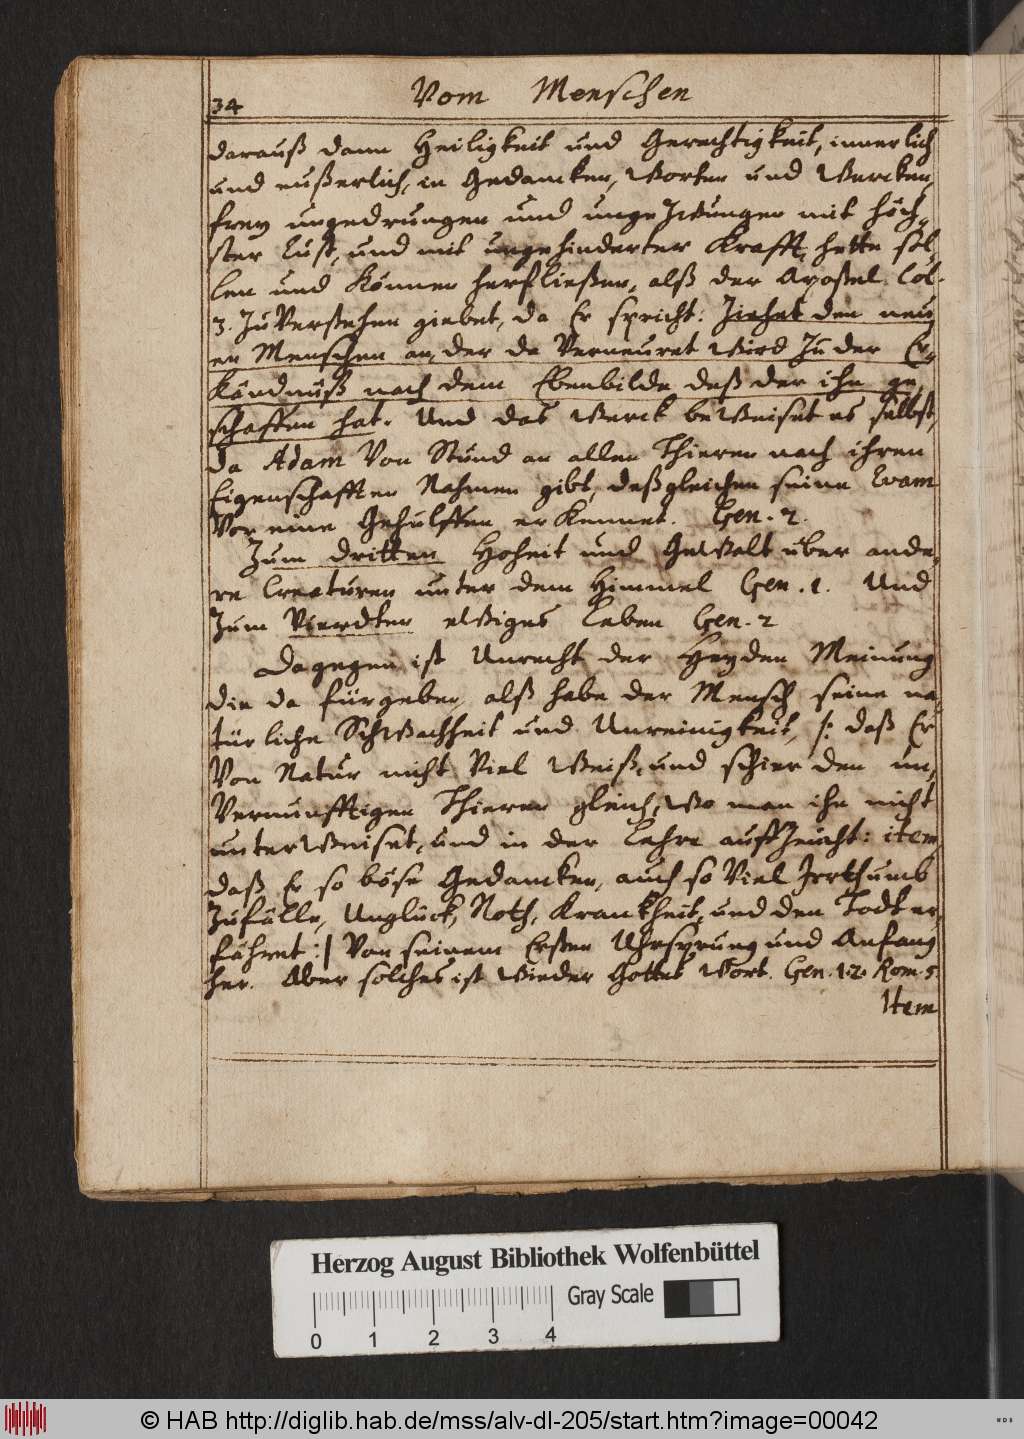 34
Vom Menschen
darauß dann Heiligkeit und Gerechtigkeit, innerlich
und eußerlich, in Gedancken, Worten und Wercken,
frey ungedrungen und ungezwungen mit höch-
ster Lust, und mit ungehinderter Krafft, hette sol-
len und können herfließen, alß der Apostel Col.
3. zu verstehen giebet, da Er spricht: Ziehet den neu
en Menschen an, der da verneuret wird zu der Er-
kändnüß nach dem Ebenbilde deß der ihn ge-
schaffen hat. Und das Werck beweiset es selbst,
da Adam von Stund an allen Thieren nach ihren
Eigenschafften Nahmen gibt, deßgleichen seine Evam
vor eine Gehülffen erkennet. Gen. 2.
Zum dritten Hoheit und Gewalt über ande-
re Creaturen unter dem Himmel Gen. 1. Und
zum Vierdten ewiges Leben Gen. 2
Dagegen ist Unrecht der Heyden Meinung
die da fürgeben, alß habe der Mensch seine na-
türliche Schwachheit und Unreinigkeit, /: daß Er
von Natur nicht viel weiß, und schier den un-
vernunfftigen Thieren gleich, wo man ihn nicht
unterweiset, und in der Lehre aufferzeucht: item
daß Er so böse Gedancken, auch so viel Irrthumb
Zufälle, Unglück, Noth, Kranckheit, und den Todt er-
fähret :/ von seinem Ersten Uhrsprung und Anfang
her. Aber solches ist wieder Gottes Wort. Gen. 1.2. Rom. 5.
Item
Herzog August Bibliothek Wolfenbüttel
Gray Scale
0 1 2 3 4
© HAB http://diglib.hab.de/mss/alv-dl-205/start.htm?image=00042